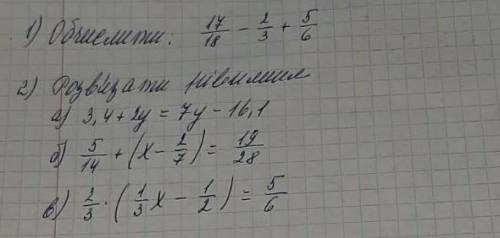 1) Обчислити: 17/18 - 2/3 + 5/6
2) Розв'язати рівняння
а) 3,4 + 2y = 7y - 16,1
б) 5/14 + (x - 2/7) = 19/28
в) 2/3 · (1/3 x - 1/2) = 5/6